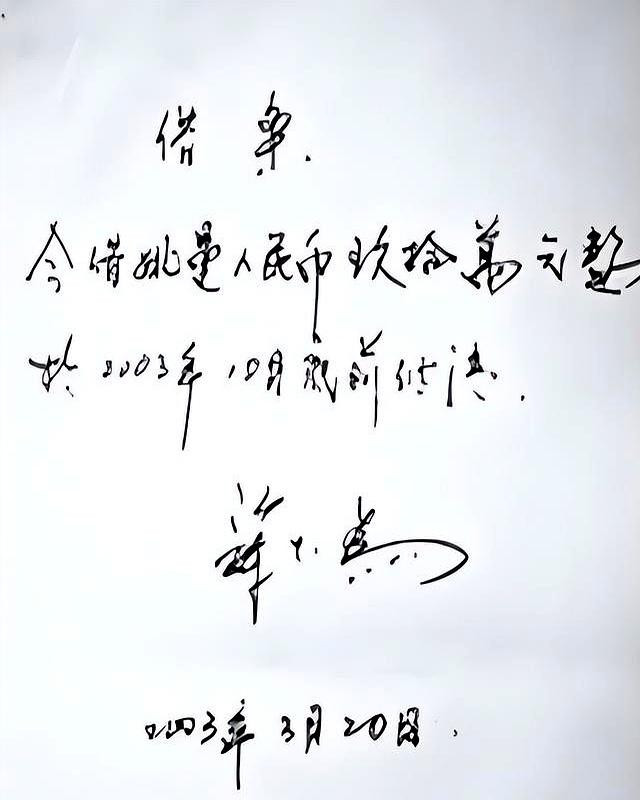 借条.
今借姚量人民币玖拾萬元整
於2003年10月底前付清.
2003年3月20日.